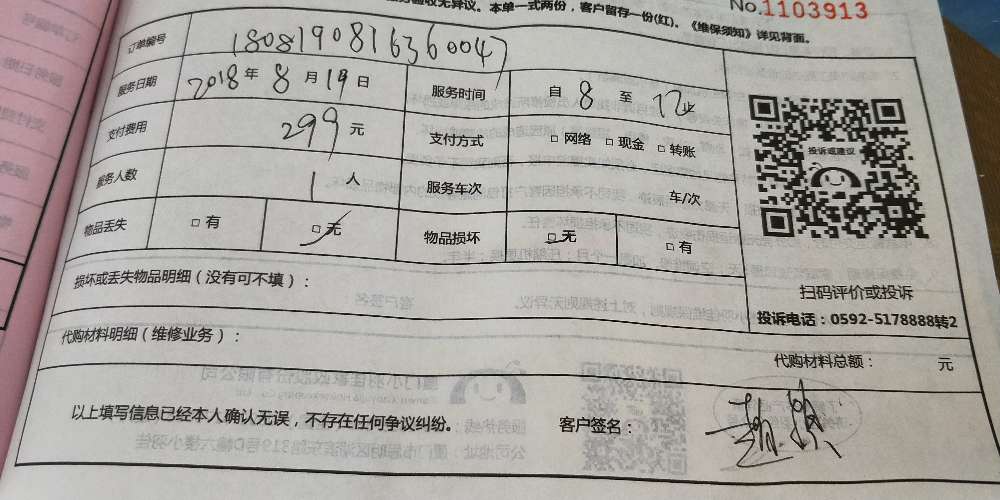 验收无异议。本单一式两份，客户留存一份(红)。《维保须知》详见背面。
No.1103913
订单编号 1808190816360047
服务日期 2018年8月19日 服务时间 自8至12止
支付费用 299元 支付方式 □网络 □现金 □转账
服务人数 1人 服务车次 车/次
物品丢失 □有 □无 物品损坏 □无 □有
投诉或建议
损坏或丢失物品明细（没有可不填）：
扫码评价或投诉
投诉电话：0592-5178888转2
代购材料明细（维修业务）：
代购材料总额： 元
以上填写信息已经本人确认无误，不存在任何争议纠纷。 客户签名：